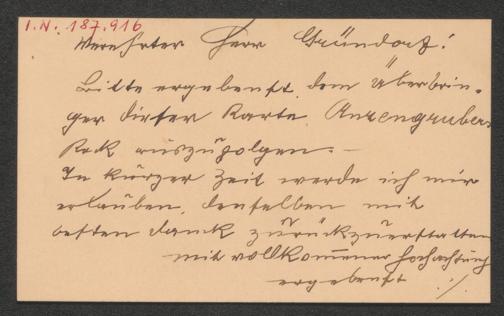 I.N. 187.916
Verehrter Herr Gründorf!
Bitte ergebenst, dem Überbrin-
ger dieser Karte Anzengrubers
Rock auszufolgen. –
In kurzer Zeit werde ich mir
erlauben, denselben mit
bestem Dank zurückzuerstatten
mit vollkommener Hochachtung
ergebenst ./.